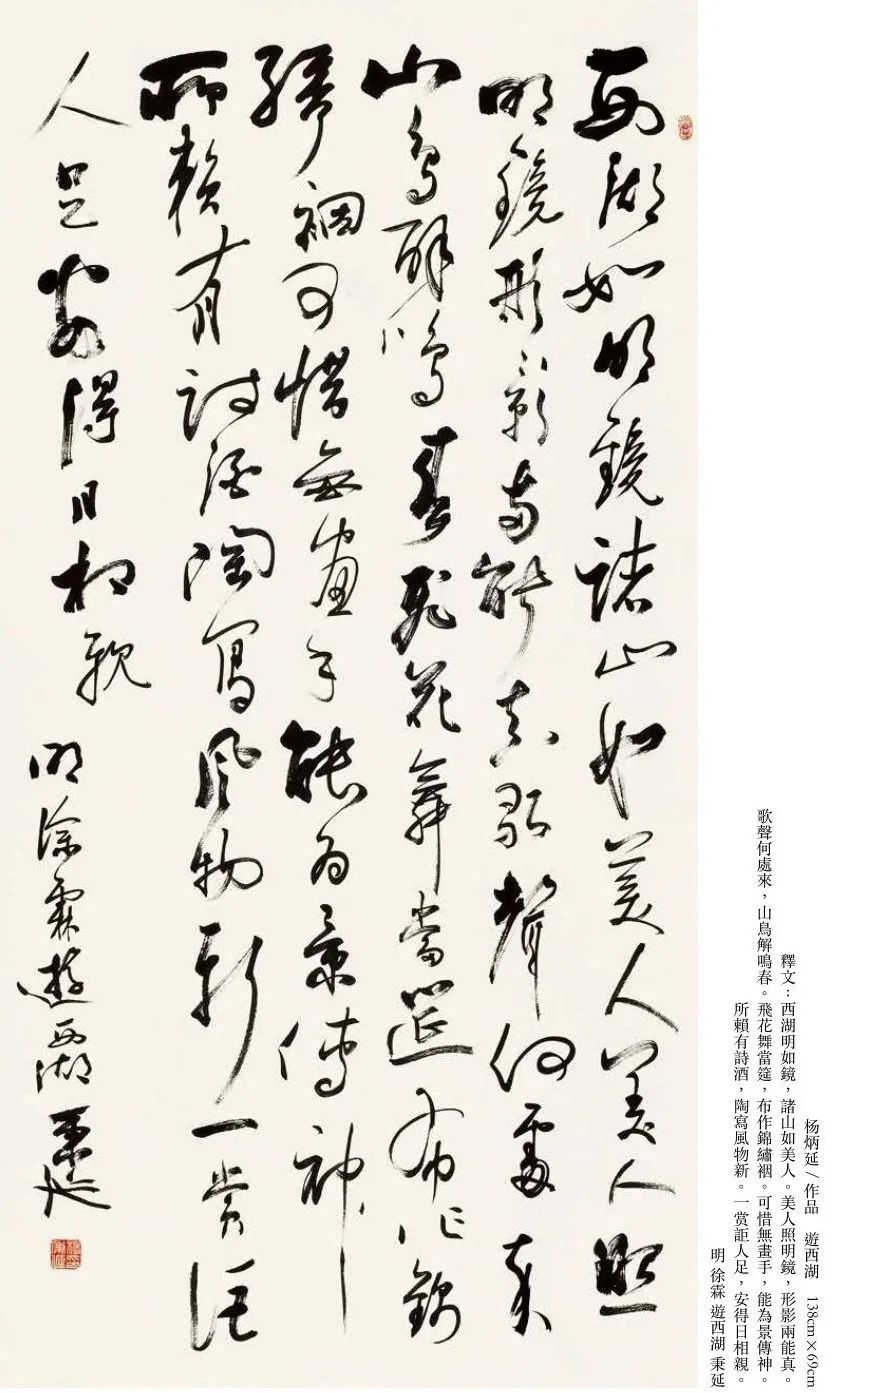 西湖如明鏡諸山如美人美人照
明鏡形影兩能真歌聲何處來
山鳥解鳴春飛花舞當筵布作錦
繡裀可惜無畫手能為景傳神
所賴有詩酒陶寫風物新一賞詎
人足安得日相親
明徐霖遊西湖 秉延
杨炳延/作品 遊西湖 138cm×69cm
釋文：西湖明如鏡，諸山如美人。美人照明鏡，形影兩能真。
歌聲何處來，山鳥解鳴春。飛花舞當筵，布作錦繡裀。可惜無畫手，能為景傳神。
所賴有詩酒，陶寫風物新。一賞詎人足，安得日相親。
明 徐霖 遊西湖 秉延